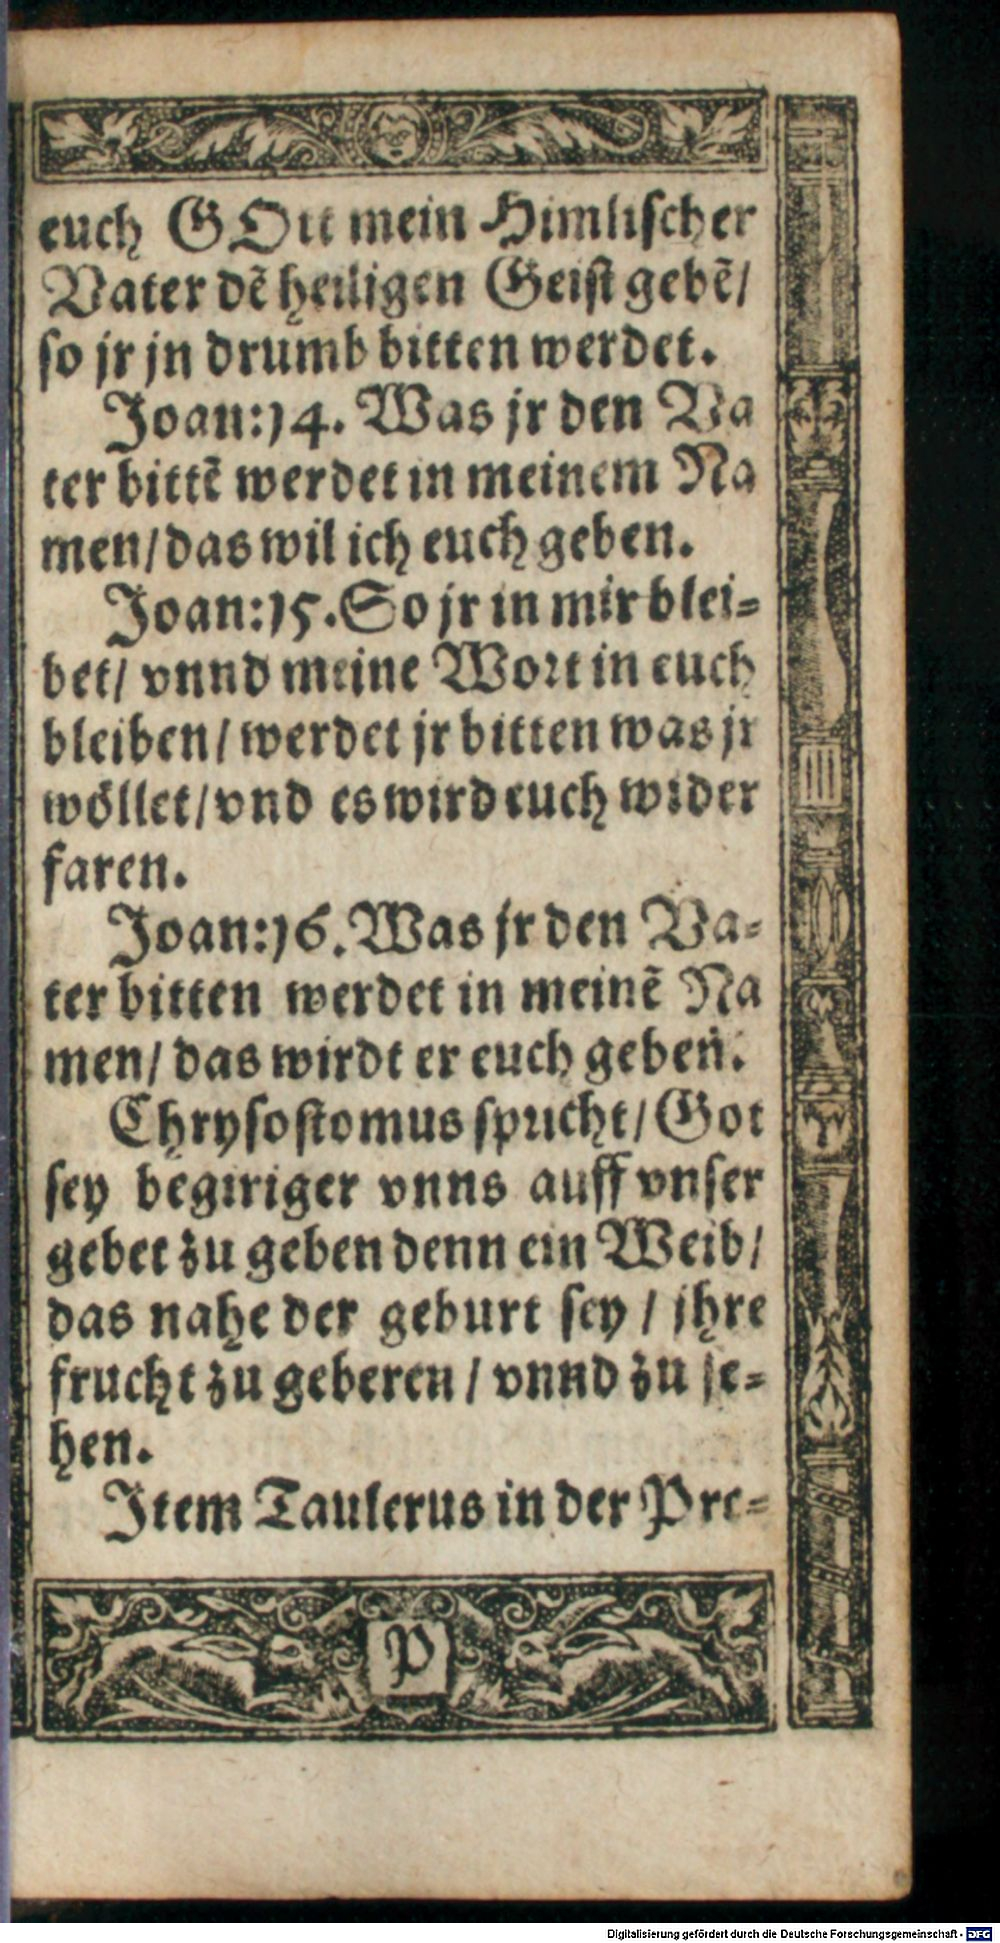 euch GOtt mein Himlischer
Vater dẽ heiligen Geist gebẽ/
so jr jn drumb bitten werdet.
Joan:14. Was jr den Va
ter bittẽ werdet in meinem Na
men/das wil ich euch geben.
Joan:15. So jr in mir blei-
bet/ vnnd meine Wort in euch
bleiben/ werdet jr bitten was jr
wöllet/vnd es wird euch wider
faren.
Joan:16. Was jr den Va-
ter bitten werdet in meinẽ Na
men/ das wirdt er euch geben.
Chrysostomus spricht/ Got
sey begiriger vnns auff vnser
gebet zu geben denn ein Weib/
das nahe der geburt sey / jhre
frucht zu geberen / vnnd zu se-
hen.
Item Taulerus in der Pre-
P
Digitalisierung gefördert durch die Deutsche Forschungsgemeinschaft - DFG